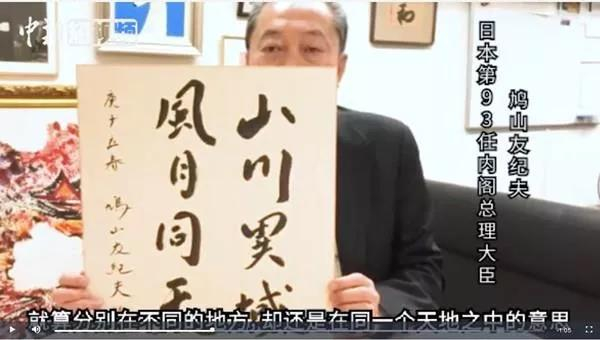 中新视频
和
山川異域
風月同天
庚子立春 鳩山友紀夫
日本第93任内阁总理大臣
鸠山友纪夫
就算分别在不同的地方,却还是在同一个天地之中的意思